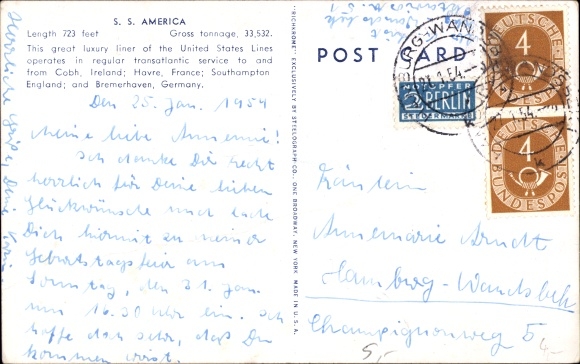 S. S. AMERICA
Length 723 feet Gross tonnage, 33,532.
This great luxury liner of the United States Lines
operates in regular transatlantic service to and
from Cobh, Ireland; Havre, France; Southampton
England; and Bremerhaven, Germany.
Den 25. Jan. 1954
Meine liebe Annemie!
Ich danke Dir recht
herzlich für Deine lieben
Glückwünsche und lade
Dich hiermit zu meiner
Geburtstagsfeier am
Sonntag, den 31. Jan.
um 16.30 Uhr ein. Ich
hoffe doch sehr, daß Du
kommen wirst.
Herzliche Grüße, Deine Karin
"RICHROME" EXCLUSIVELY BY STEELOGRAPH CO. ONE BROADWAY, NEW YORK. MADE IN U.S.A.
POST CARD
DEUTSCHE
4
BUNDESPOST
DEUTSCHE
4
BUNDESPOST
NOTOPFER
2 BERLIN
STEUERMARKE
BURG-WANDSBEK
1.54
Fräulein
Annemarie Arndt
Hamburg-Wandsbek
Champignonweg 5